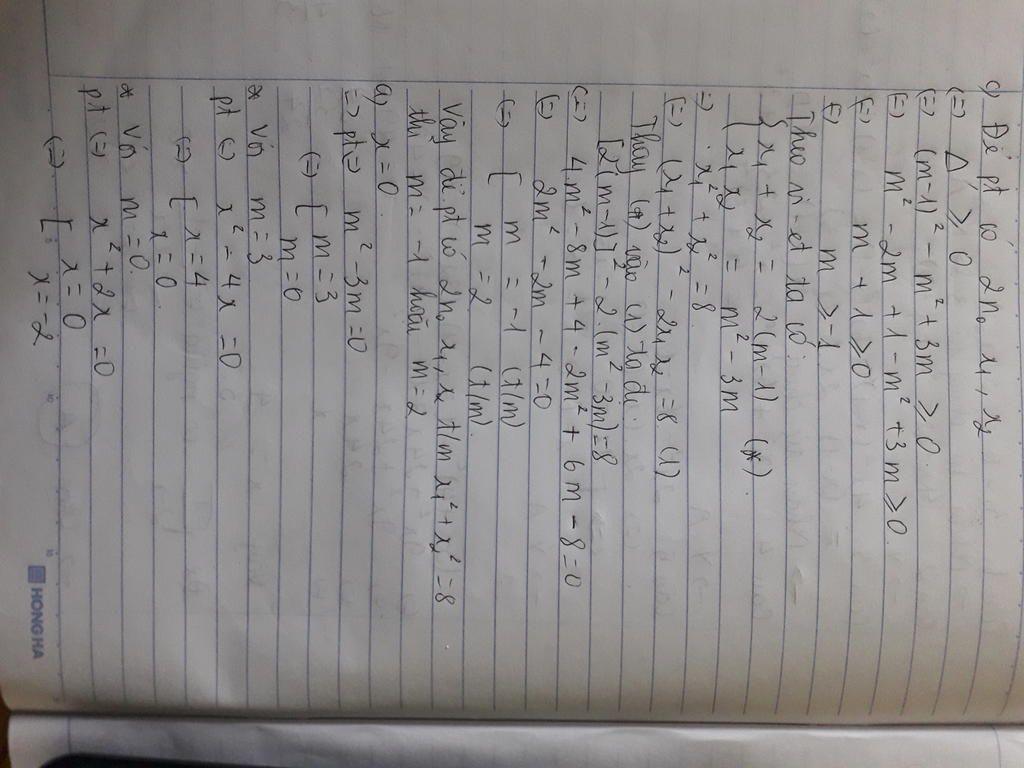 c) Để pt có 2 no x1, x2
(=) Δ ≥ 0
(=) (m-1)² - m² + 3m ≥ 0
(=) m² - 2m + 1 - m² + 3m ≥ 0
(=) m + 1 ≥ 0
(=) m ≥ -1
Theo vi-ét ta có:
{ x1 + x2 = 2(m-1) (*)
x1x2 = m² - 3m
=) x1² + x2² = 8
(=) (x1 + x2)² - 2x1x2 = 8 (1)
Thay (*) vào (1) ta đc
[2(m-1)]² - 2.(m² - 3m) = 8
(=) 4m² - 8m + 4 - 2m² + 6m - 8 = 0
(=) 2m² - 2m - 4 = 0
(=) [ m = -1 (t/m)
m = 2 (t/m).
Vậy để pt có 2no x1, x2 t/m x1² + x2² = 8
thì m = -1 hoặc m = 2
a) x = 0
=) pt(=) m² - 3m = 0
(=) [ m = 3
m = 0
* Với m = 3
pt (=) x² - 4x = 0
(=) [ x = 4
x = 0
* Với m = 0
pt (=) x² + 2x = 0
(=) [ x = 0
x = -2
HONG HA